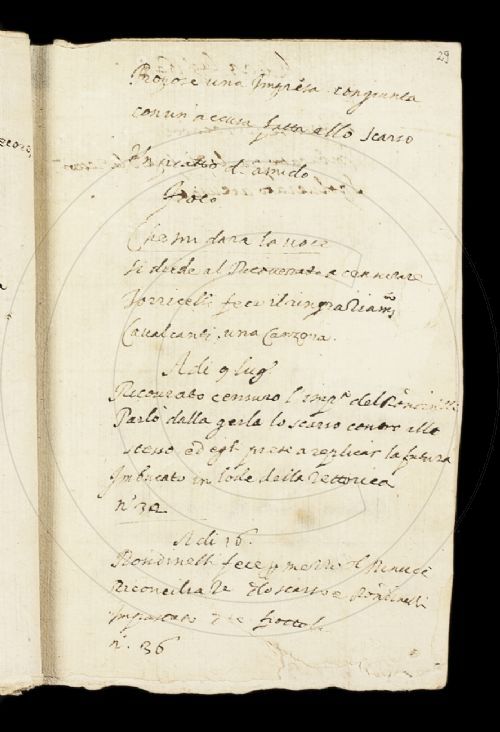 29
Propose una Impresa congiunta
con un'accusa fatta allo Scarso
Un piatto d'amido
Gioco
Che mi darà la voce
Si diede al Ricovrato a censurare
Torricelli fece il ringratiam.to
Cavalcanti una Canzona.
A di 9 lug.o
Ricovrato censurò l'imp.a del Rondinelli
Parlò dalla gerla lo scarso contro allo
stesso ed egli prese a replicar la futura
Imbucato in lode della Rettorica
n.o 32
A di 16.
Rondinelli fece
Riconciliare lo scarso e Rondinelli
Impastato
n.o 36